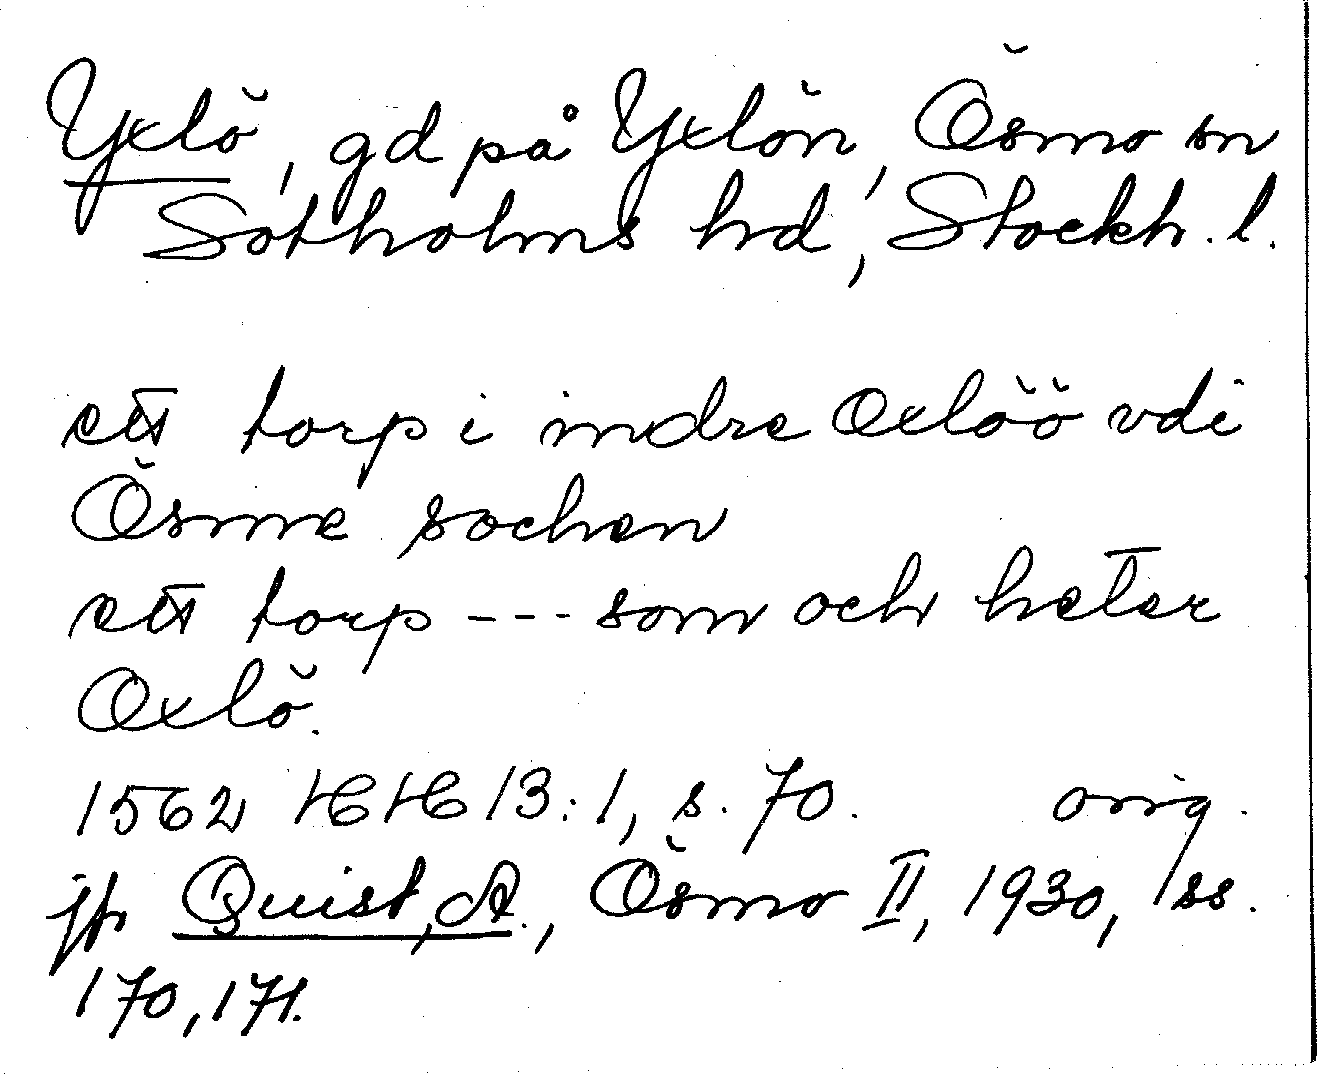 Yxlö, gd på Yxlön, Ösmo sn
Sotholms hd, Stockh. l.
ett torp i indre Oxlöö vdi
Ösme sochen
ett torp --- som och heter
Oxlö.
1562 HH 13:1, s. 70. orig.
jfr Quist, A., Ösmo II, 1930, ss.
170, 171.